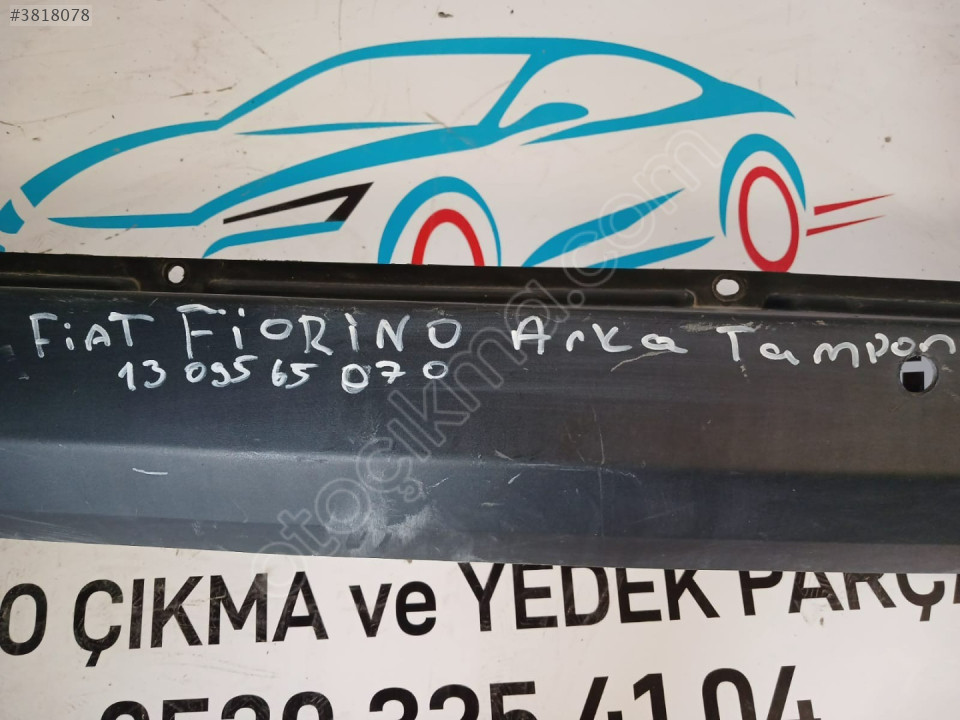 #3818078
FiAT FiORiNO Arka Tampon
13 09565 070
otoçıkma.com
O ÇIKMA ve YEDEK PARÇA
0530 325 41 04